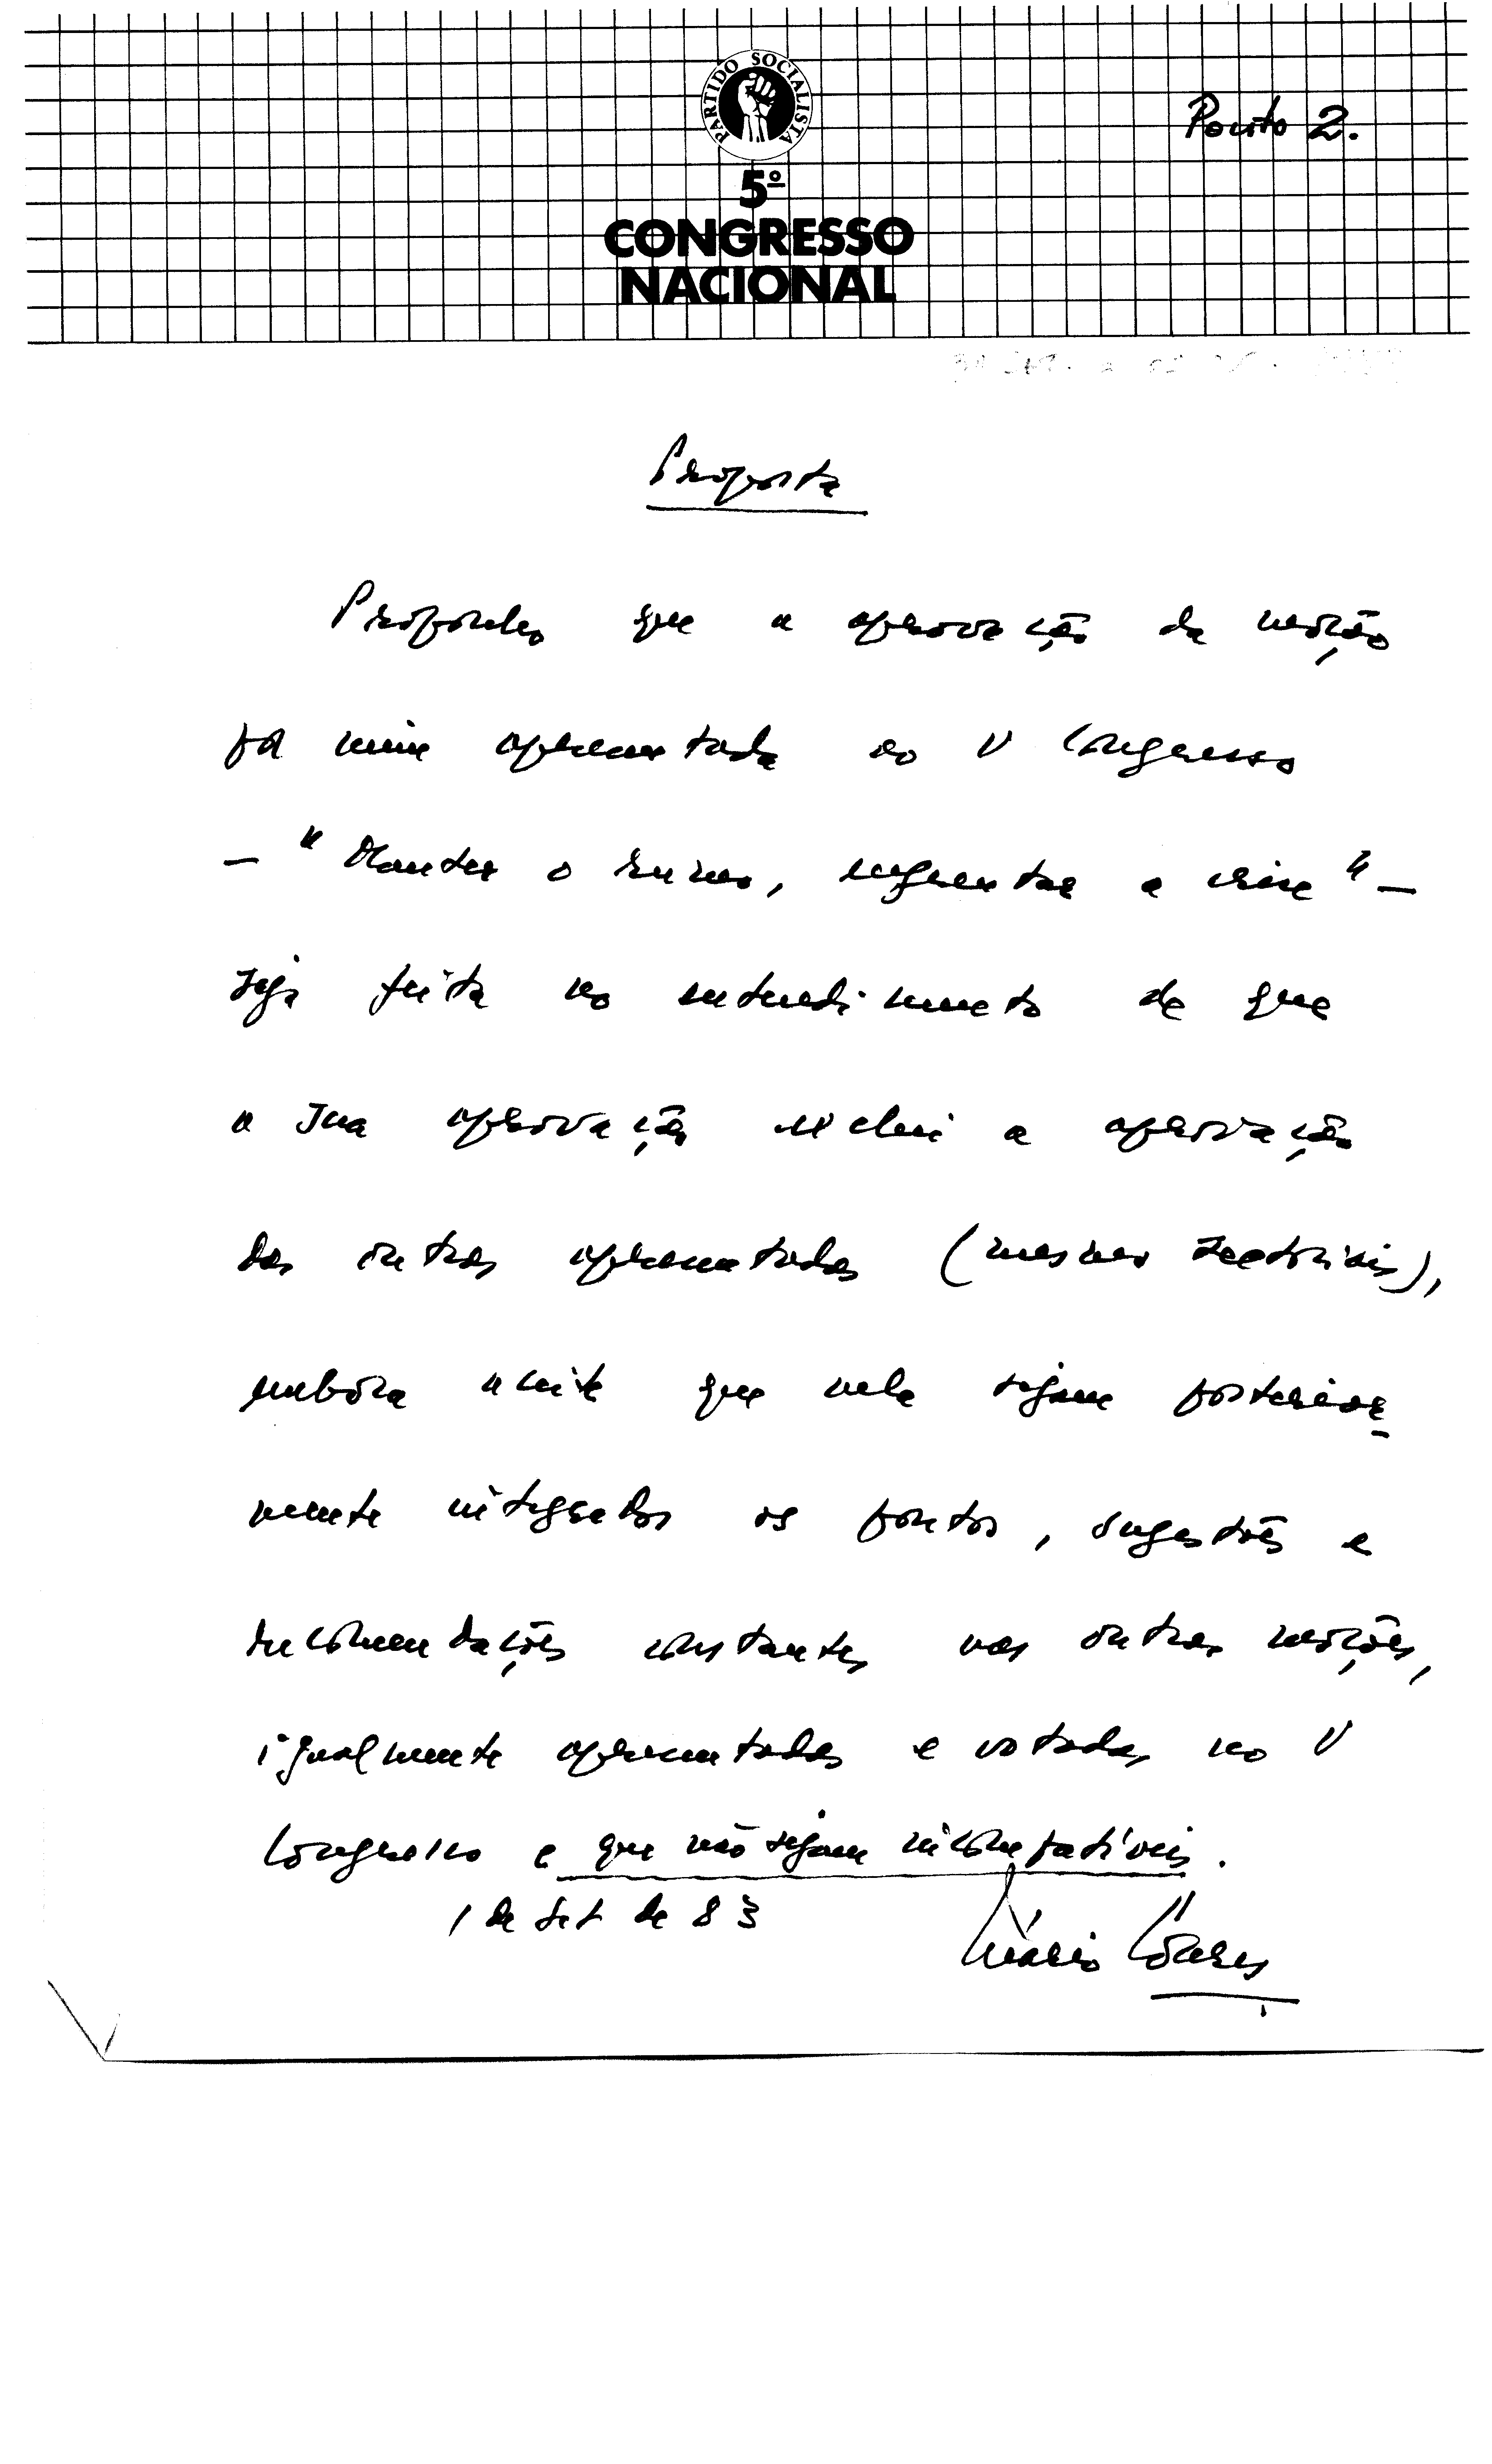 PARTIDO SOCIALISTA
Ponto 2.
5º
CONGRESSO
NACIONAL
Proposta
Proponho que a aprovação da moção
por mim apresentada ao V Congresso
— "Manter o rumo, enfrentar a crise" —
seja feita no entendimento de que
a sua aprovação exclui a aprovação
das outras apresentadas (mesmo sectoriais),
embora aceite que nela sejam posterior-
mente integrados os pontos, sugestões e
recomendações constantes nas outras moções,
igualmente apresentadas e votadas no V
Congresso e que não sejam incompatíveis.
1 de Set de 83
Mário Soares